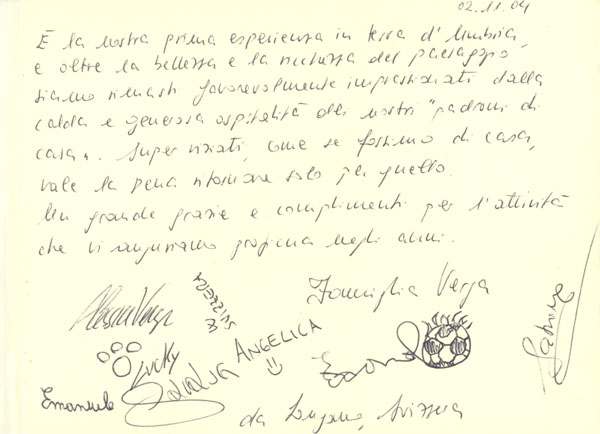 02.11.04
È la nostra prima esperienza in terra d'Umbria,
e oltre la bellezza e la ricchezza del paesaggio
siamo rimasti favorevolmente impressionati dalla
calda e generosa ospitalità dei nostri "padroni di
casa". Super viziati, come se fossimo di casa,
vale la pena ritornare solo per quello.
Un grande grazie e complimenti per l'attività
che vi auguriamo proficua negli anni.
Famiglia Verga
SVIZZERA
ANGELICA
Lucky
Emanuele
da Lugano, Svizzera